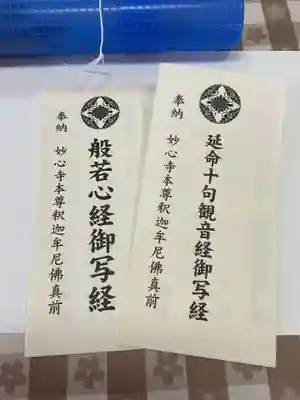 奉納 妙心寺本尊釈迦牟尼佛真前
般若心経御写経
奉納 妙心寺本尊釈迦牟尼佛真前
延命十句観音経御写経